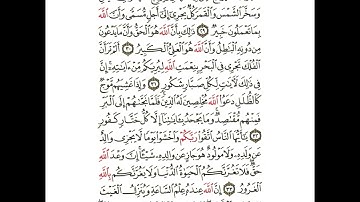 وَسَخَّرَ ٱلشَّمْسَ وَٱلْقَمَرَ كُلٌّ يَجْرِىٓ إِلَىٰٓ أَجَلٍ مُّسَمًّى وَأَنَّ ٱللَّهَ
بِمَا تَعْمَلُونَ خَبِيرٌ ٢٩ ذَٰلِكَ بِأَنَّ ٱللَّهَ هُوَ ٱلْحَقُّ وَأَنَّ مَا يَدْعُونَ
مِن دُونِهِ ٱلْبَٰطِلُ وَأَنَّ ٱللَّهَ هُوَ ٱلْعَلِىُّ ٱلْكَبِيرُ ٣٠ أَلَمْ تَرَ أَنَّ
ٱلْفُلْكَ تَجْرِى فِى ٱلْبَحْرِ بِنِعْمَتِ ٱللَّهِ لِيُرِيَكُم مِّنْ ءَايَٰتِهِۦٓ إِنَّ
فِى ذَٰلِكَ لَءَايَٰتٍ لِّكُلِّ صَبَّارٍ شَكُورٍ ٣١ وَإِذَا غَشِيَهُم مَّوْجٌ
كَٱلظُّلَلِ دَعَوُا۟ ٱللَّهَ مُخْلِصِينَ لَهُ ٱلدِّينَ فَلَمَّا نَجَّىٰهُمْ إِلَى ٱلْبَرِّ
فَمِنْهُم مُّقْتَصِدٌ وَمَا يَجْحَدُ بِـَٔايَٰتِنَآ إِلَّا كُلُّ خَتَّارٍ كَفُورٍ
٣٢ يَٰٓأَيُّهَا ٱلنَّاسُ ٱتَّقُوا۟ رَبَّكُمْ وَٱخْشَوْا۟ يَوْمًا لَّا يَجْزِى وَالِدٌ
عَن وَلَدِهِۦ وَلَا مَوْلُودٌ هُوَ جَازٍ عَن وَالِدِهِۦ شَيْـًٔا إِنَّ وَعْدَ ٱللَّهِ
حَقٌّ فَلَا تَغُرَّنَّكُمُ ٱلْحَيَوٰةُ ٱلدُّنْيَا وَلَا يَغُرَّنَّكُم بِٱللَّهِ
ٱلْغَرُورُ ٣٣ إِنَّ ٱللَّهَ عِندَهُۥ عِلْمُ ٱلسَّاعَةِ وَيُنَزِّلُ ٱلْغَيْثَ